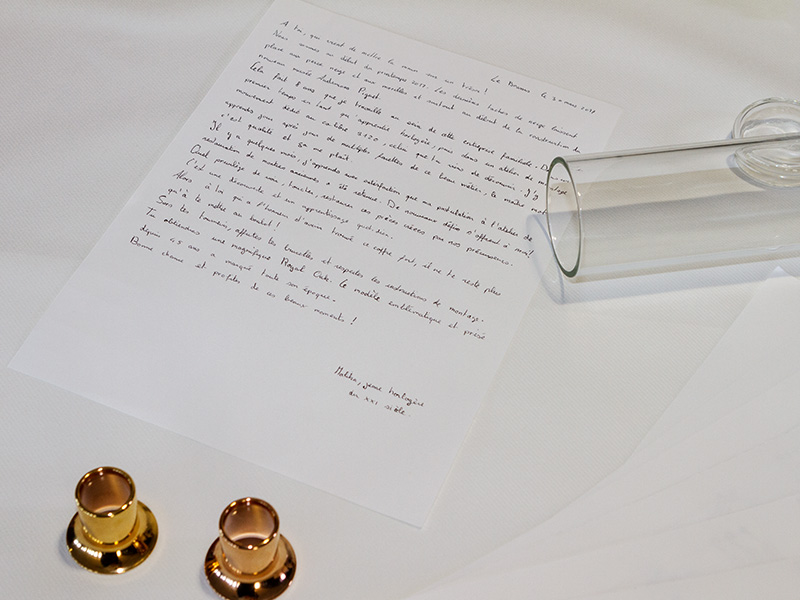 Le Brassus, le 30 mars 2017
A toi, qui vient de mettre la main sur un trésor !
Nous sommes au début du printemps 2017. Les dernières taches de neige laissent
place aux perce neige et aux morilles et surtout au début de la construction du
nouveau musée Audemars Piguet.
Cela fait 8 ans que je travaille au sein de cette entreprise familiale. Dans un
premier temps en tant qu'apprentie horlogère, puis dans un atelier de montage
mouvement dédié au calibre 3120, celui que tu viens de découvrir. J'y
apprends jour après jour de multiples facettes de ce beau métier, le maître mot
c'est qualité et ça me plaît.
Il y a quelques mois, j'apprends avec satisfaction que ma postulation à l'atelier de
restauration de montres anciennes a été retenue. De nouveaux défis s'offrent à moi !
Quel privilège de voir, toucher, restaurer ces pièces créées par nos prédécesseurs.
C'est une découverte et un apprentissage quotidien.
Alors à toi qui a l'honneur d'avoir trouvé ce coffre fort, il ne te reste plus
qu'à te mettre au boulot !
Sors les tournevis, affûtes les brucelles et respectes les instructions de montage.
Tu obtiendras une magnifique Royal Oak. Le modèle emblématique et prisé
depuis 45 ans a marqué toute son époque.
Bonne chance et profites de ces beaux moments !
jeune horlogère
du XXI siècle.